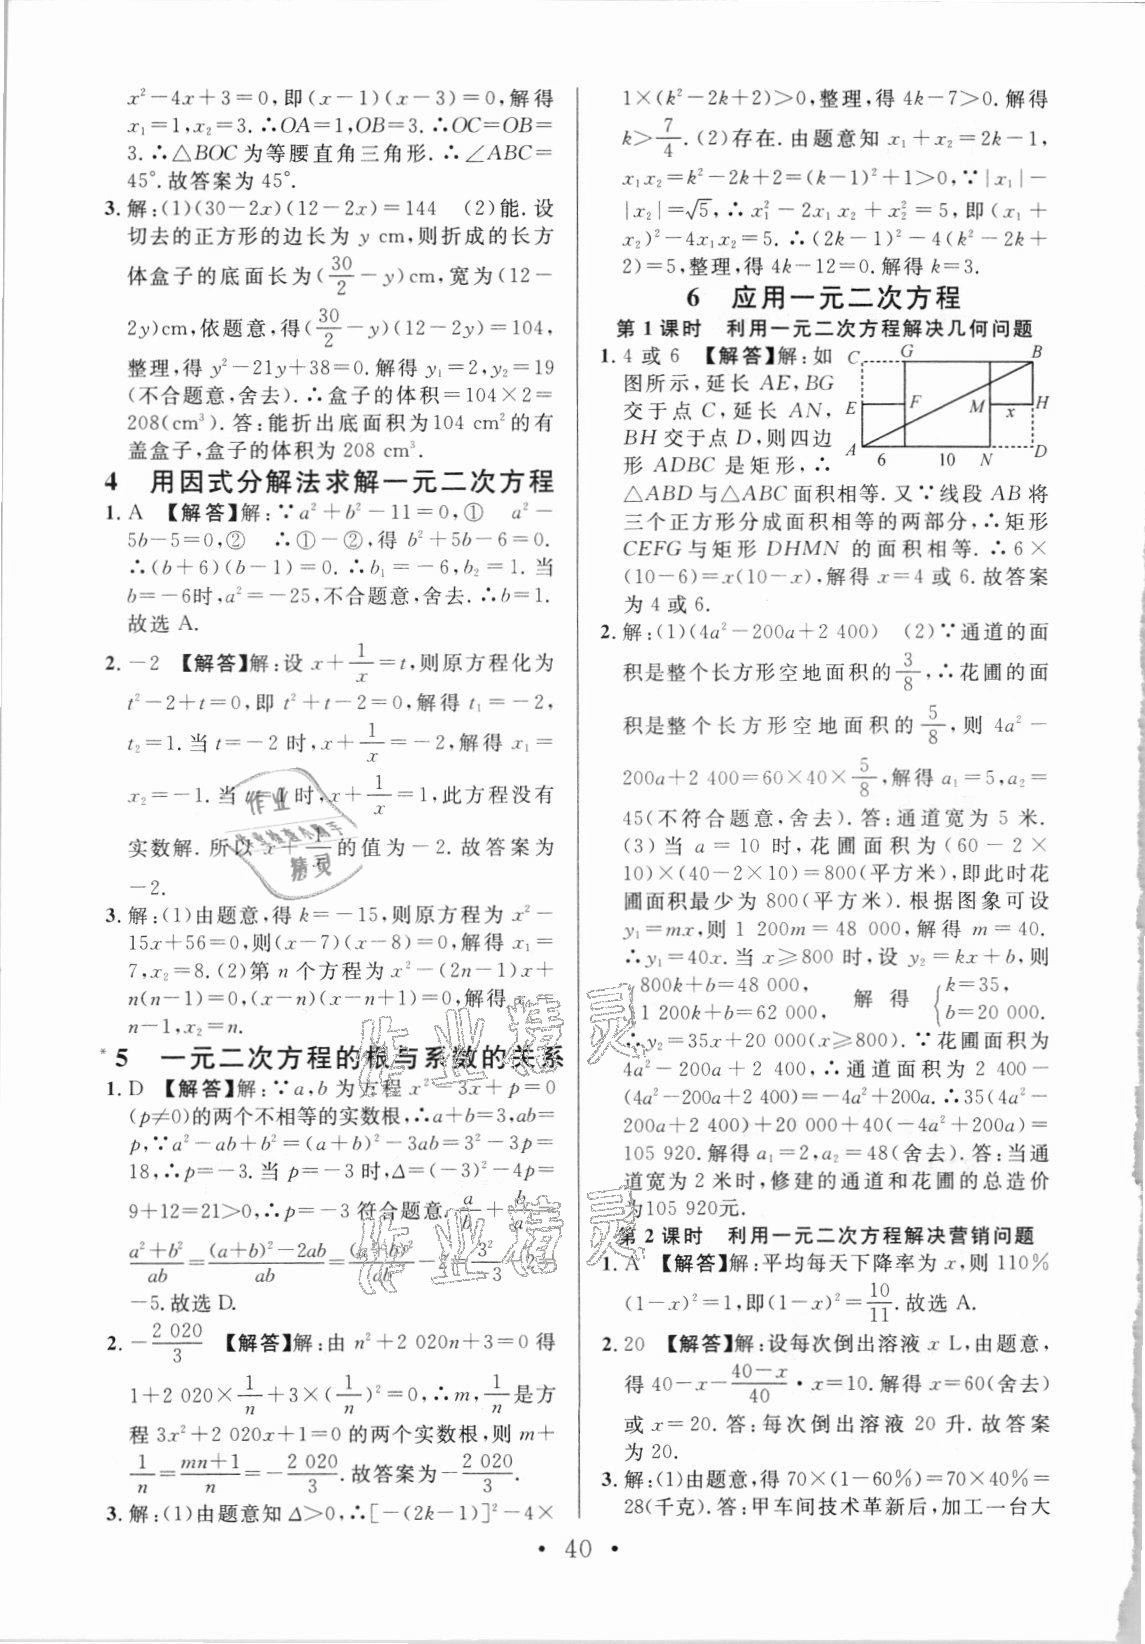 x²-4x+3=0,即(x-1)(x-3)=0,解得
x₁=1,x₂=3.∴OA=1,OB=3.∴OC=OB=
3.∴△BOC为等腰直角三角形.∴∠ABC=
45°.故答案为45°.
3.解:(1)(30-2x)(12-2x)=144 (2)能.设
切去的正方形的边长为 y cm,则折成的长方
体盒子的底面长为(30/2-y)cm,宽为(12-
2y)cm,依题意,得(30/2-y)(12-2y)=104,
整理,得 y²-21y+38=0.解得 y₁=2,y₂=19
(不合题意,舍去).∴盒子的体积=104×2=
208(cm³).答:能折出底面积为104 cm²的有
盖盒子,盒子的体积为 208 cm³.
4 用因式分解法求解一元二次方程
1.A 【解答】解:∵a²+b²-11=0,① a²-
5b-5=0,② ∴①-②,得 b²+5b-6=0.
∴(b+6)(b-1)=0.∴b₁=-6,b₂=1.当
b=-6时,a²=-25,不合题意,舍去.∴b=1.
故选 A.
2.-2 【解答】解:设 x+1/x=t,则原方程化为
t²-2+t=0,即 t²+t-2=0,解得 t₁=-2,
t₂=1.当 t=-2 时,x+1/x=-2,解得 x₁=
x₂=-1.当 t=1 时,x+1/x=1,此方程没有
实数解.所以 x+1/x的值为-2.故答案为
-2.
3.解:(1)由题意,得 k=-15,则原方程为 x²-
15x+56=0,则(x-7)(x-8)=0,解得 x₁=
7,x₂=8.(2)第 n 个方程为 x²-(2n-1)x+
n(n-1)=0,(x-n)(x-n+1)=0,解得 x₁=
n-1,x₂=n.
*5 一元二次方程的根与系数的关系
1.D 【解答】解:∵a,b 为方程 x²-3x+p=0
(p≠0)的两个不相等的实数根,∴a+b=3,ab=
p,∵a²-ab+b²=(a+b)²-3ab=3²-3p=
18,∴p=-3.当 p=-3 时,Δ=(-3)²-4p=
9+12=21>0,∴p=-3 符合题意.a/b+b/a=
(a²+b²)/ab=((a+b)²-2ab)/ab=(a+b)²/ab-2=3²/-3-2=
-5.故选 D.
2.-2 020/3 【解答】解:由 n²+2 020n+3=0 得
1+2 020×1/n+3×(1/n)²=0,∴m,1/n是方
程 3x²+2 020x+1=0 的两个实数根,则 m+
1/n=(mn+1)/n=-2 020/3.故答案为-2 020/3.
3.解:(1)由题意知 Δ>0,∴[-(2k-1)]²-4×
1×(k²-2k+2)>0,整理,得 4k-7>0.解得
k>7/4.(2)存在.由题意知 x₁+x₂=2k-1,
x₁x₂=k²-2k+2=(k-1)²+1>0,∵|x₁|-
|x₂|=√5,∴x₁²-2x₁x₂+x₂²=5,即(x₁+
x₂)²-4x₁x₂=5.∴(2k-1)²-4(k²-2k+
2)=5,整理,得 4k-12=0.解得 k=3.
6 应用一元二次方程
第1课时 利用一元二次方程解决几何问题
1.4 或 6 【解答】解:如
图所示,延长 AE,BG
交于点 C,延长 AN,
BH 交于点 D,则四边
形 ADBC 是矩形,∴
C G B
E F M x H
A 6 10 N D
△ABD与△ABC面积相等.又∵线段 AB将
三个正方形分成面积相等的两部分,∴矩形
CEFG与矩形 DHMN 的面积相等.∴6×
(10-6)=x(10-x),解得 x=4 或 6.故答案
为 4 或 6.
2.解:(1)(4a²-200a+2 400) (2)∵通道的面
积是整个长方形空地面积的3/8,∴花圃的面
积是整个长方形空地面积的5/8,则 4a²-
200a+2 400=60×40×5/8,解得 a₁=5,a₂=
45(不符合题意,舍去).答:通道宽为 5 米.
(3)当 a=10 时,花圃面积为(60-2×
10)×(40-2×10)=800(平方米),即此时花
圃面积最少为 800(平方米).根据图象可设
y₁=mx,则 1 200m=48 000,解得 m=40.
∴y₁=40x.当 x≥800 时,设 y₂=kx+b,则
{800k+b=48 000, 1 200k+b=62 000, 解得 {k=35, b=20 000.
∴y₂=35x+20 000(x≥800).∵花圃面积为
4a²-200a+2 400,∴通道面积为 2 400-
(4a²-200a+2 400)=-4a²+200a.∴35(4a²-
200a+2 400)+20 000+40(-4a²+200a)=
105 920.解得 a₁=2,a₂=48(舍去).答:当通
道宽为 2 米时,修建的通道和花圃的总造价
为105 920元.
第2课时 利用一元二次方程解决营销问题
1.A 【解答】解:平均每天下降率为 x,则 110%
(1-x)²=1,即(1-x)²=10/11.故选 A.
2.20 【解答】解:设每次倒出溶液 x L,由题意,
得 40-x-(40-x)/40·x=10.解得 x=60(舍去)
或 x=20.答:每次倒出溶液 20 升.故答案
为 20.
3.解:(1)由题意,得 70×(1-60%)=70×40%=
28(千克).答:甲车间技术革新后,加工一台大
·40·
作业精灵
作业精灵
作业
精灵